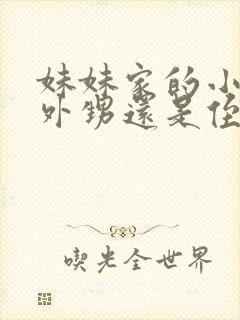 妹妹家的小
外甥還是侄
喫光全世界